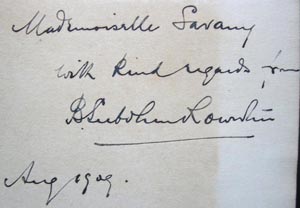 Mademoiselle Savary
with kind regards from
Aug 1909.